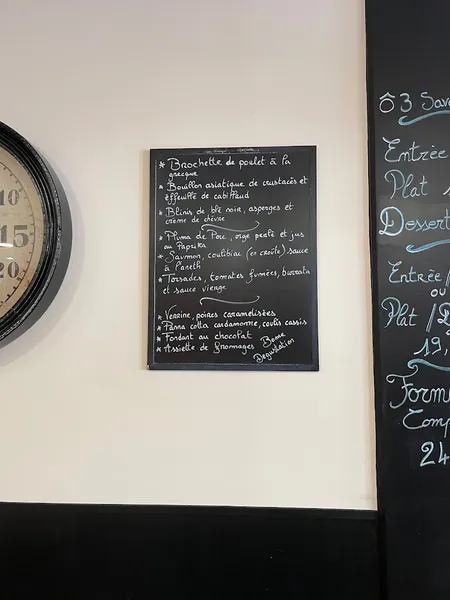 * Brochette de poulet à la
grecque
* Bouillon asiatique de crustacés et
effeuillé de cabillaud
* Blinis de blé noir, asperges et
crème de chèvre
* Pluma de Porc, orge perlé et jus
au Paprika
* Saumon, coulibiac (en croûte) sauce
à l'aneth
* Torsades, tomates fumées, burrata
et sauce vierge
* Verrine, poires caramélisées
* Panna cotta cardamome, coulis cassis
* Fondant au chocolat
* Assiette de fromages
Bonne
Dégustation
10
15
20
Ô 3 Sav
Entrée
Plat
Dessert
Entrée/
ou
Plat /D
19,
Form
Comp
24